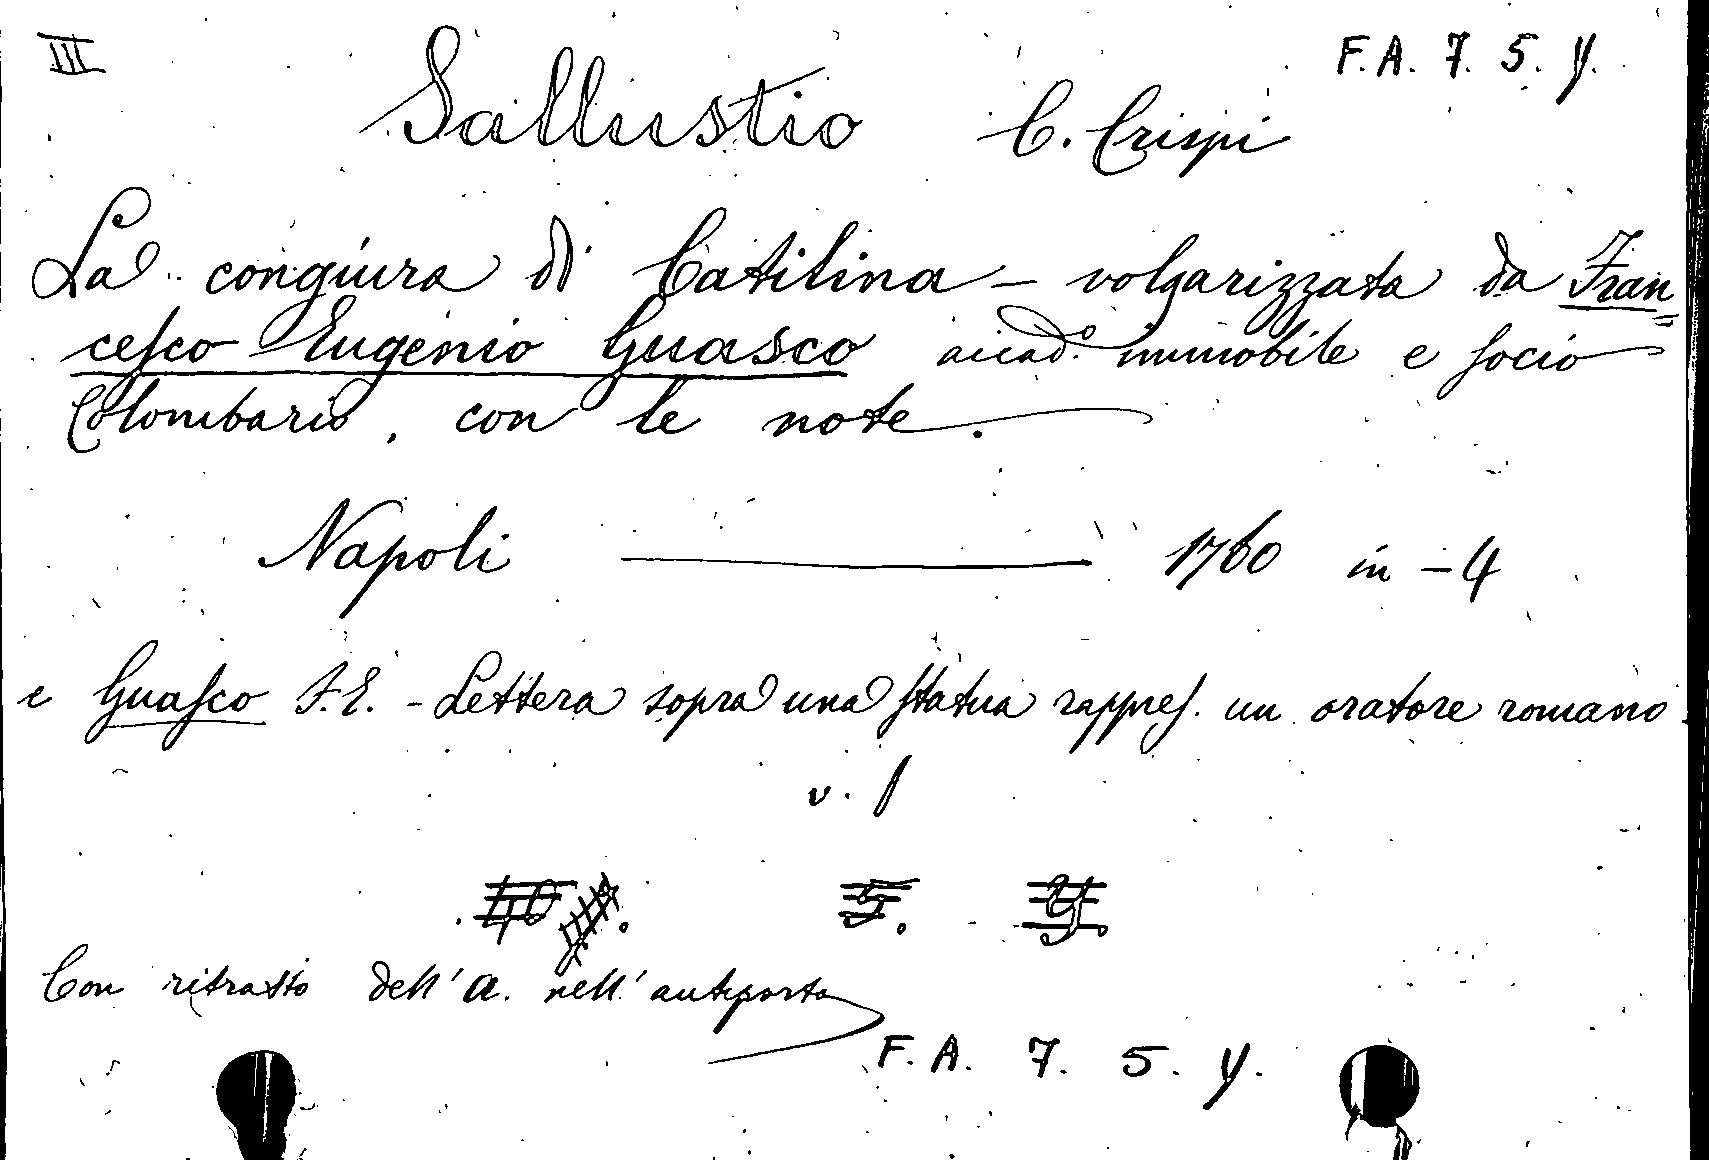 III F.A. 7. 5. Y.
Sallustio C. Crispi
La congiura di Catilina – volgarizzata da Fran=
cesco Eugenio Guasco accad.o immobile e socio
Colombario, con le note.
Napoli — 1760 in – 4
e Guasco F. E. - Lettera sopra una statua rappres. un oratore romano
v. f
5. Y.
Con ritratto dell'a. nell'antiporta
F. A. 7. 5. Y.